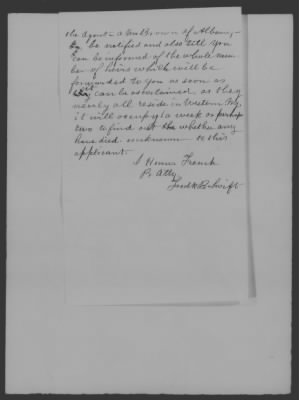 the Agent - a Wm Brown of Albany -
be notified and also till you
can be informed of the whole num
ber of heirs which will be
forwarded to you as soon as
it can be ascertained, as they
nearly all reside in Western
it will occupy a week or perhaps
two to find out whether any
have died unknown to this
applicant.
French
By Atty
Fredk B Swift